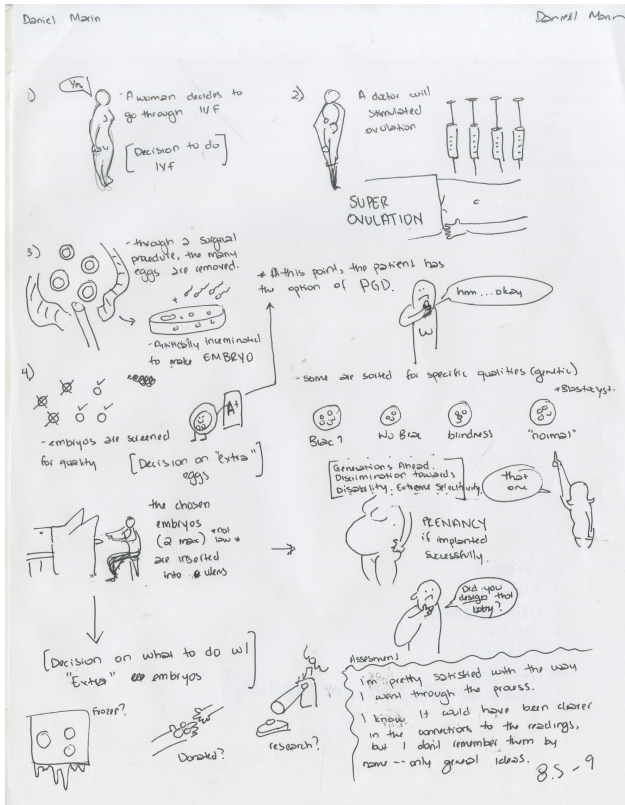 Daniel Marin
Daniell Marin
1)
Yes
- A woman decides to
go through IVF
[Decision to do
IVF]
2)
A doctor will
stimulated
ovulation
SUPER
OVULATION
3)
- through a surgical
procedure, the many
eggs are removed.
- Artificially inseminated
to make EMBRYO
* At this point, the patient has
the option of PGD.
hmm...okay
W
4)
A+
- embryos are screened
for quality
[Decision on "extra"
eggs]
- some are sorted for specific qualities (genetic)
* Blastocyst.
Brac?
No Brac
blindness
"normal"
[Generations Ahead.
Discrimination towards
Disability. Extreme Selectivity.]
that
one
the chosen
embryos
(2 max) *not
law*
are inserted
into uterus
PRENANCY
if implanted
successfully.
Did you
design that
baby?
[Decision on what to do w/
"Extra" embryos]
Frozen?
Donated?
research?
Assesment
i'm pretty satisfied with the way
I went through the process.
I know it could have been clearer
in the connections to the readings,
but I don't remember them by
name -- only general ideas.
8.5 - 9